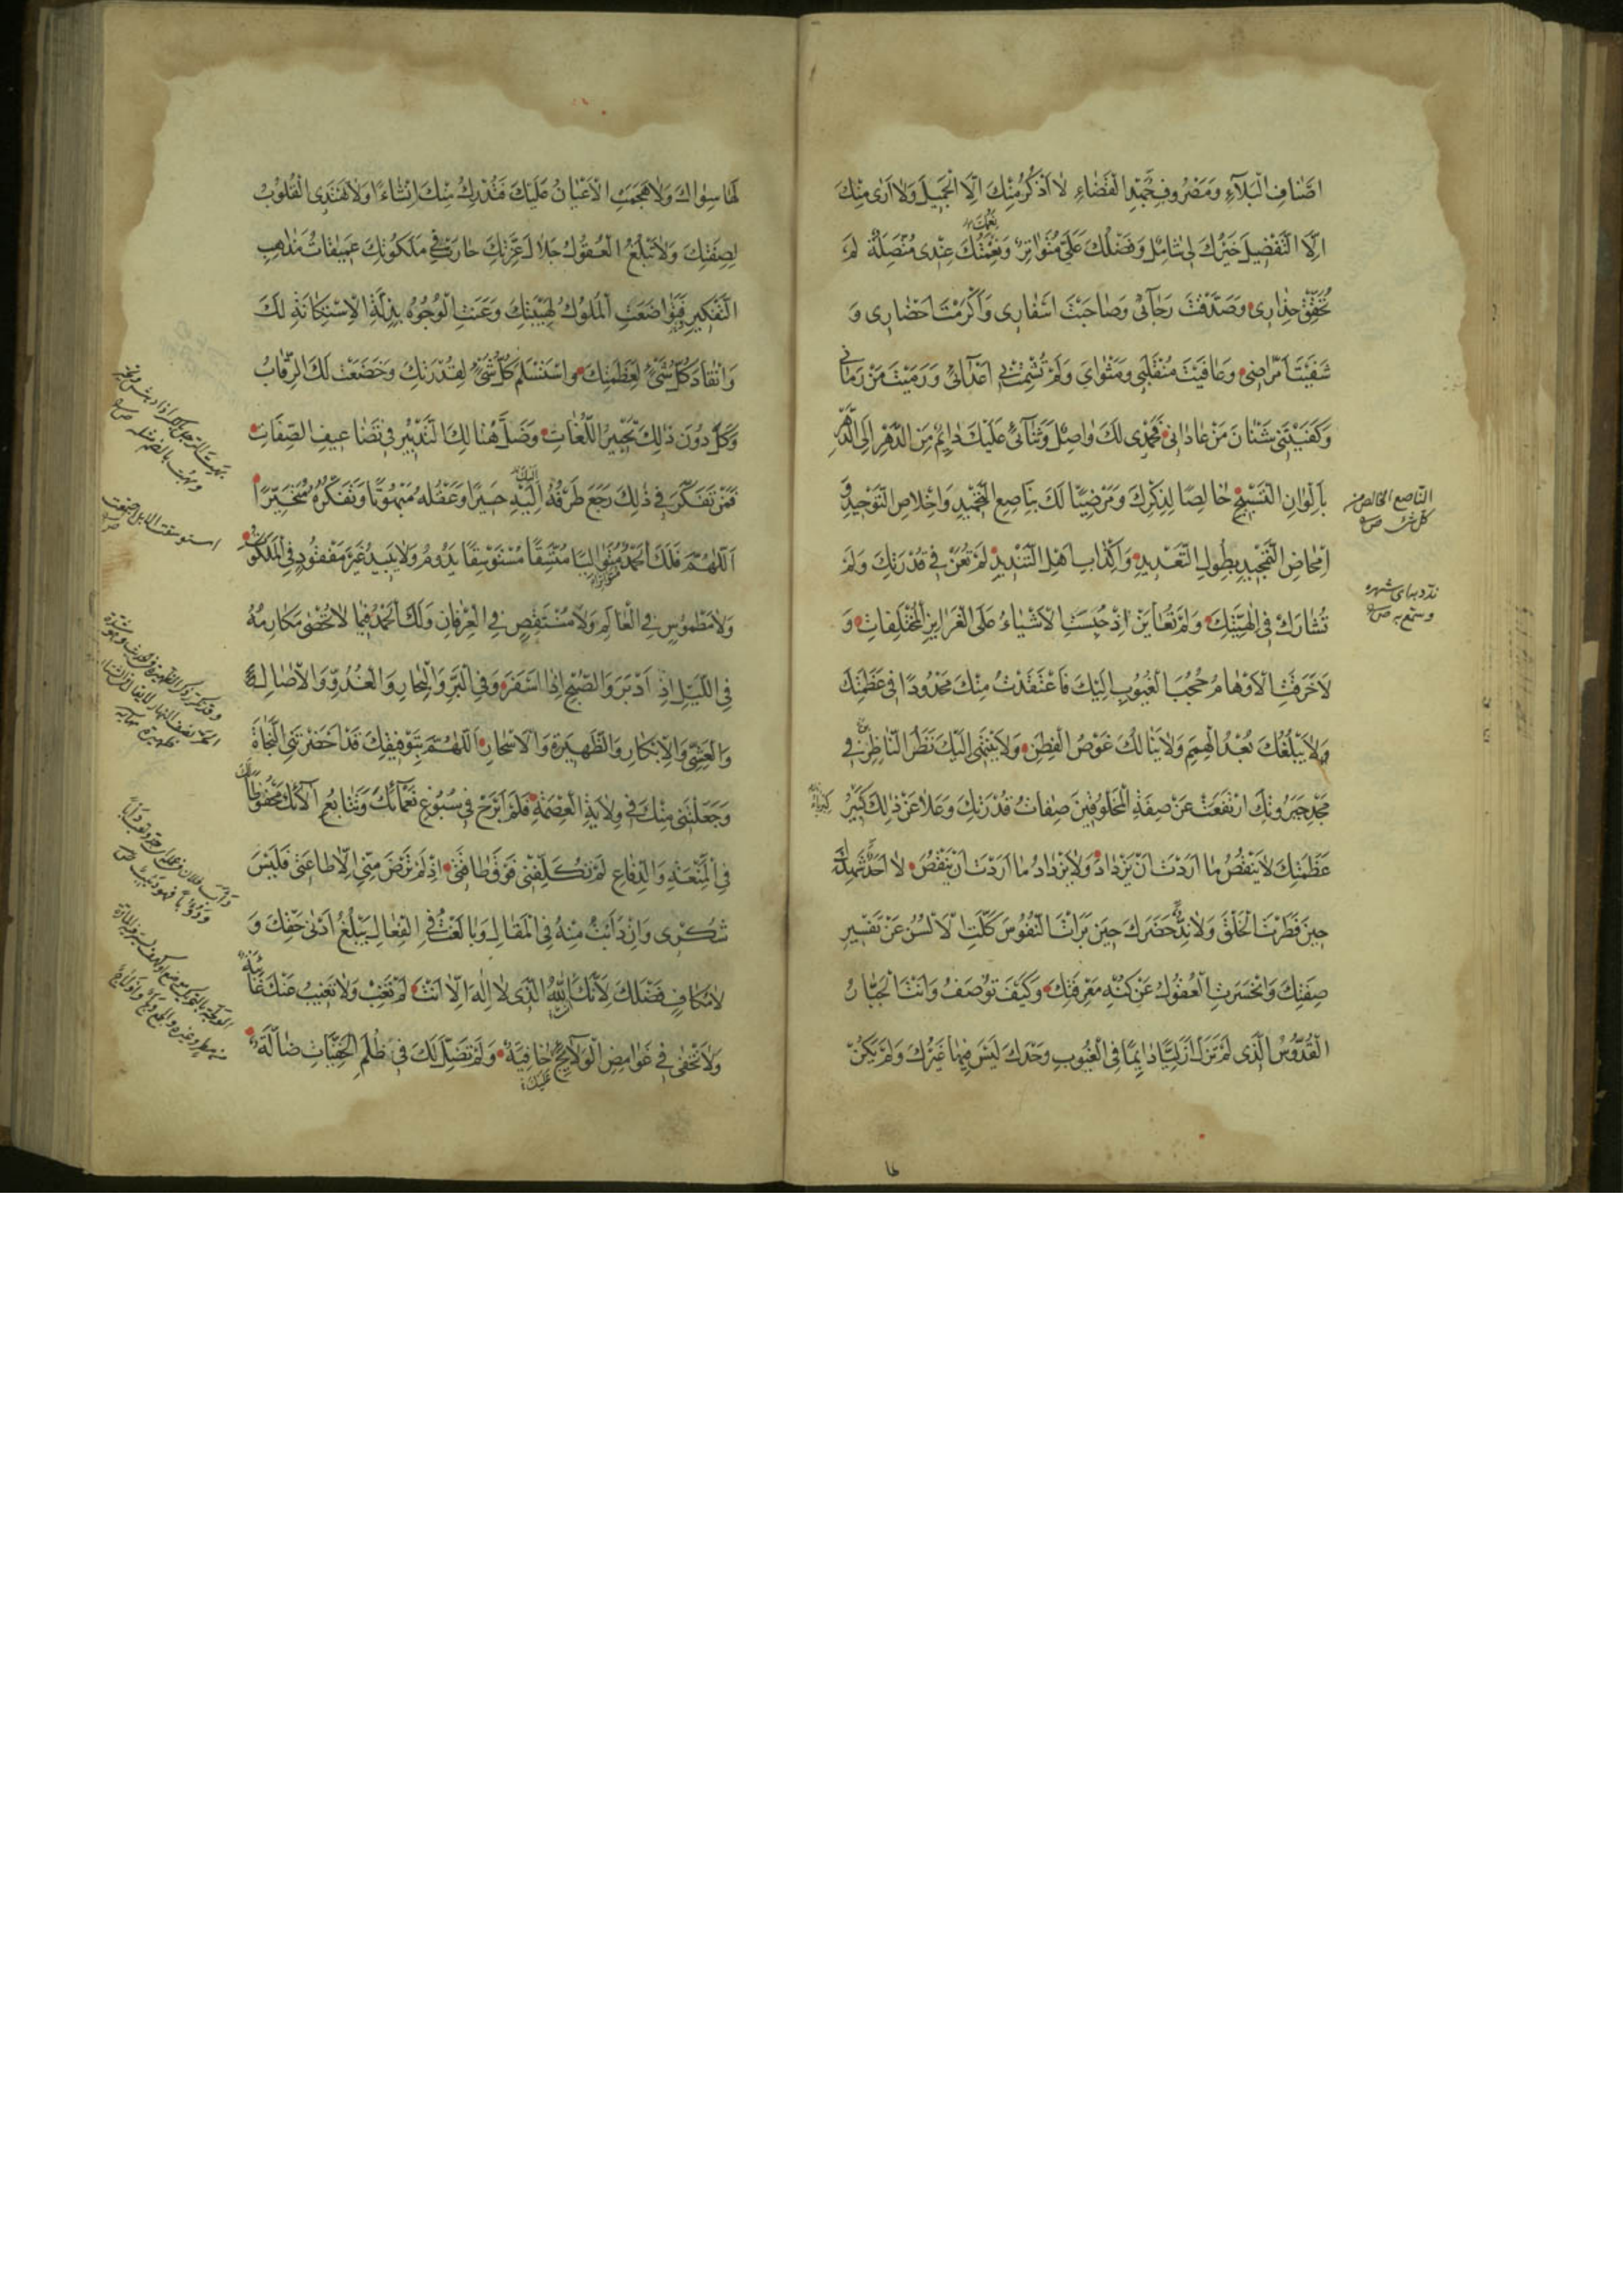 اَصْنَافِ الْبَلَآءِ وَمَصْرُوفِ جُهْدِ الْقَضَاءِ لَا اَذْكُرُ مِنْكَ اِلَّا الْجَمِيلَ وَلَا اَرَىٰ مِنْكَ
اِلَّا التَّفْضِيلَ خَيْرُكَ لِي شَامِلٌ وَفَضْلُكَ عَلَيَّ مُتَوَاتِرٌ وَنِعْمَتُكَ عِنْدِي مُتَّصِلَةٌ لَمْ
تُحَقِّقْ حِذَارِي وَصَدَّقْتَ رَجَآئِي وَصَاحَبْتَ اَسْفَارِي وَاَكْرَمْتَ اَحْضَارِي وَ
شَفَيْتَ اَمْرَاضِي وَعَافَيْتَ مُنْقَلَبِي وَمَثْوَايَ وَلَمْ تُشْمِتْ بِي اَعْدَآئِي وَرَمَيْتَ مَنْ رَمَانِي
وَكَفَيْتَنِي شَنْاٰنَ مَنْ عَادَانِي فَحَمْدِي لَكَ وَاصِلٌ وَثَنَآئِي عَلَيْكَ دَائِمٌ مِنَ الدَّهْرِ اِلَى الدَّهْرِ
بِاَلْوَانِ التَّسْبِيحِ خَالِصًا لِذِكْرِكَ وَمَرْضِيًّا لَكَ بِنَاصِعِ التَّحْمِيدِ وَاِخْلَاصِ التَّوْحِيدِ وَ
اِمْحَاضِ التَّمْجِيدِ بِطُولِ التَّعْدِيدِ وَاِكْذَابِ اَهْلِ التَّنْدِيدِ لَمْ تُعَنْ فِي قُدْرَتِكَ وَلَمْ
تُشَارَكْ فِي اِلٰهِيَّتِكَ وَلَمْ تُعَايَنْ اِذْ حَبَسْتَ الْاَشْيَاءَ عَلَى الْغَرَايِزِ الْمُخْتَلِفَاتِ وَ
لَاخَرَقَتِ الْاَوْهَامُ حُجُبَ الْغُيُوبِ اِلَيْكَ فَاَعْتَقَدْتُ مِنْكَ مَحْدُودًا فِي عَظَمَتِكَ
وَلَا يَبْلُغُكَ بُعْدُ الْهِمَمِ وَلَا يَنَالُكَ غَوْصُ الْفِطَنِ وَلَا يَنْتَهِي اِلَيْكَ نَظَرُ النَّاظِرِينَ فِي
مَجْدِ جَبَرُوتِكَ ارْتَفَعَتْ عَنْ صِفَةِ الْمَخْلُوقِينَ صِفَاتُ قُدْرَتِكَ وَعَلَا عَنْ ذٰلِكَ كَبِيرُ
عَظَمَتِكَ لَا يَنْقُصُ مَا اَرَدْتَ اَنْ يَزْدَادَ وَلَا يَزْدَادُ مَا اَرَدْتَ اَنْ يَنْقُصَ لَا اَحَدَ شَهِدَكَ
حِينَ فَطَرْتَ الْخَلْقَ وَلَا نِدَّ حَضَرَكَ حِينَ بَرَاْتَ النُّفُوسَ كَلَّتِ الْاَلْسُنُ عَنْ تَفْسِيرِ
صِفَتِكَ وَانْحَسَرَتِ الْعُقُولُ عَنْ كُنْهِ مَعْرِفَتِكَ وَكَيْفَ تُوصَفُ وَاَنْتَ الْجَبَّارُ
الْقُدُّوسُ الَّذِي لَمْ تَزَلْ اَزَلِيًّا دَايِمًا فِي الْغُيُوبِ وَحْدَكَ لَيْسَ فِيهَا غَيْرُكَ وَلَمْ يَكُنْ
النّاصع الخالص من
كل شئ ص
ندد به ای شهره
وسمّع به ص
لَهَا سِوَاكَ وَلَا هَجَمَتِ الْاَعْيَانُ عَلَيْكَ فَتُدْرِكَ مِنْكَ اِنْشَاءً وَلَا تَهْتَدِي الْقُلُوبُ
لِصِفَتِكَ وَلَا تَبْلُغُ الْعُقُولُ جَلَالَ عِزَّتِكَ حَارَتْ فِي مَلَكُوتِكَ عَمِيقَاتُ مَذَاهِبِ
التَّفْكِيرِ فَتَوَاضَعَتِ الْمُلُوكُ لِهَيْبَتِكَ وَعَنَتِ الْوُجُوهُ بِذِلَّةِ الْاِسْتِكَانَةِ لَكَ
وَانْقَادَ كُلُّ شَيْءٍ لِعَظَمَتِكَ وَاسْتَسْلَمَ كُلُّ شَيْءٍ لِقُدْرَتِكَ وَخَضَعَتْ لَكَ الرِّقَابُ
وَكَلَّ دُونَ ذٰلِكَ تَحْبِيرُ اللُّغَاتِ وَضَلَّ هُنَالِكَ التَّدْبِيرُ فِي تَضَاعِيفِ الصِّفَاتِ
فَمَنْ تَفَكَّرَ فِي ذٰلِكَ رَجَعَ طَرْفُهُ اِلَيْهِ حَسِيرًا وَعَقْلُهُ مَبْهُوتًا وَتَفَكُّرُهُ مُتَحَيِّرًا
اَللّٰهُمَّ فَلَكَ الْحَمْدُ مُتَوَالِيًا مُتَّسِقًا مُسْتَوْسِقًا يَدُومُ وَلَا يَبِيدُ غَيْرَ مَفْقُودٍ فِي الْمَلَكُوتِ
وَلَا مَطْمُوسٍ فِي الْعَالَمِ وَلَا مُنْتَقَصٍ فِي الْعِرْفَانِ وَلَكَ الْحَمْدُ فِيمَا لَا تُحْصٰى مَكَارِمُهُ
فِي اللَّيْلِ اِذْ اَدْبَرَ وَالصُّبْحِ اِذَا اَسْفَرَ وَفِي الْبَرِّ وَالْبِحَارِ وَالْغُدُوِّ وَالْاٰصَالِ
وَالْعَشِيِّ وَالْاِبْكَارِ وَالظَّهِيرَةِ وَالْاَسْحَارِ اَللّٰهُمَّ بِتَوْفِيقِكَ قَدْ اَحْضَرْتَنِي النَّجَاةَ
وَجَعَلْتَنِي مِنْكَ فِي وِلَايَةِ الْعِصْمَةِ فَلَمْ اَبْرَحْ فِي سُبُوغِ نَعْمَآئِكَ وَتَتَابُعِ اٰلَآئِكَ مَحْفُوظًا
فِي الْمَنْعَةِ وَالدِّفَاعِ لَمْ تُكَلِّفْنِي فَوْقَ طَاقَتِي اِذْ لَمْ تَرْضَ مِنِّي اِلَّا طَاعَتِي فَلَيْسَ
شُكْرِي وَاِنْ دَاَبْتُ مِنْهُ فِي الْمَقَالِ وَبَالَغْتُ فِي الْفِعَالِ يَبْلُغُ اَدْنٰى حَقِّكَ وَ
لَا مُكَافٍ فَضْلَكَ لِاَنَّكَ اَنْتَ اللّٰهُ الَّذِي لَا اِلٰهَ اِلَّا اَنْتَ لَمْ تَغِبْ وَلَا تَغِيبُ عَنْكَ غَائِبَةٌ
وَلَا تَخْفٰى فِي غَوَامِضِ الْوَلَآيِجِ خَافِيَةٌ وَلَمْ تَضِلَّ لَكَ فِي ظُلَمِ الْخَفِيَّاتِ ضَالَّةٌ
عَلَيْكَ
استوسقت الابل اجتمعت
ص